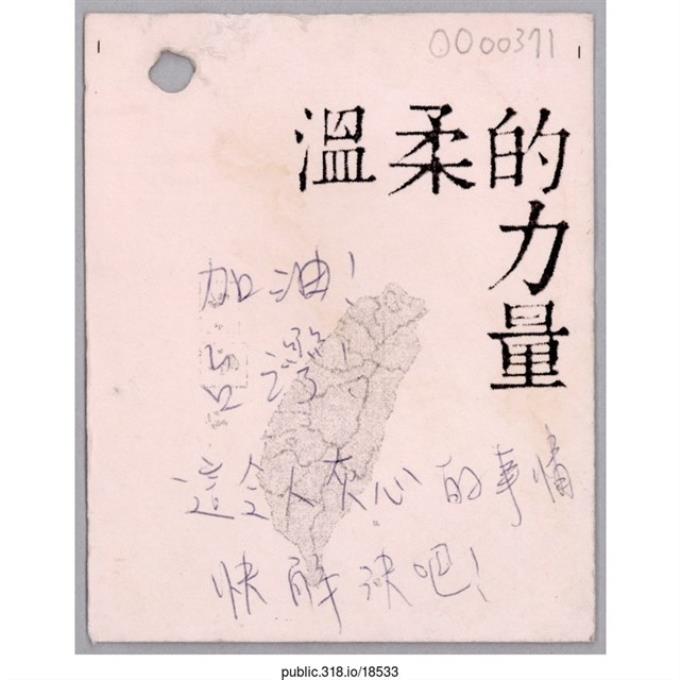 0000371
溫柔的
力
量
加油!
台灣!
這令人灰心的事情
快解決吧!
public.318.io/18533